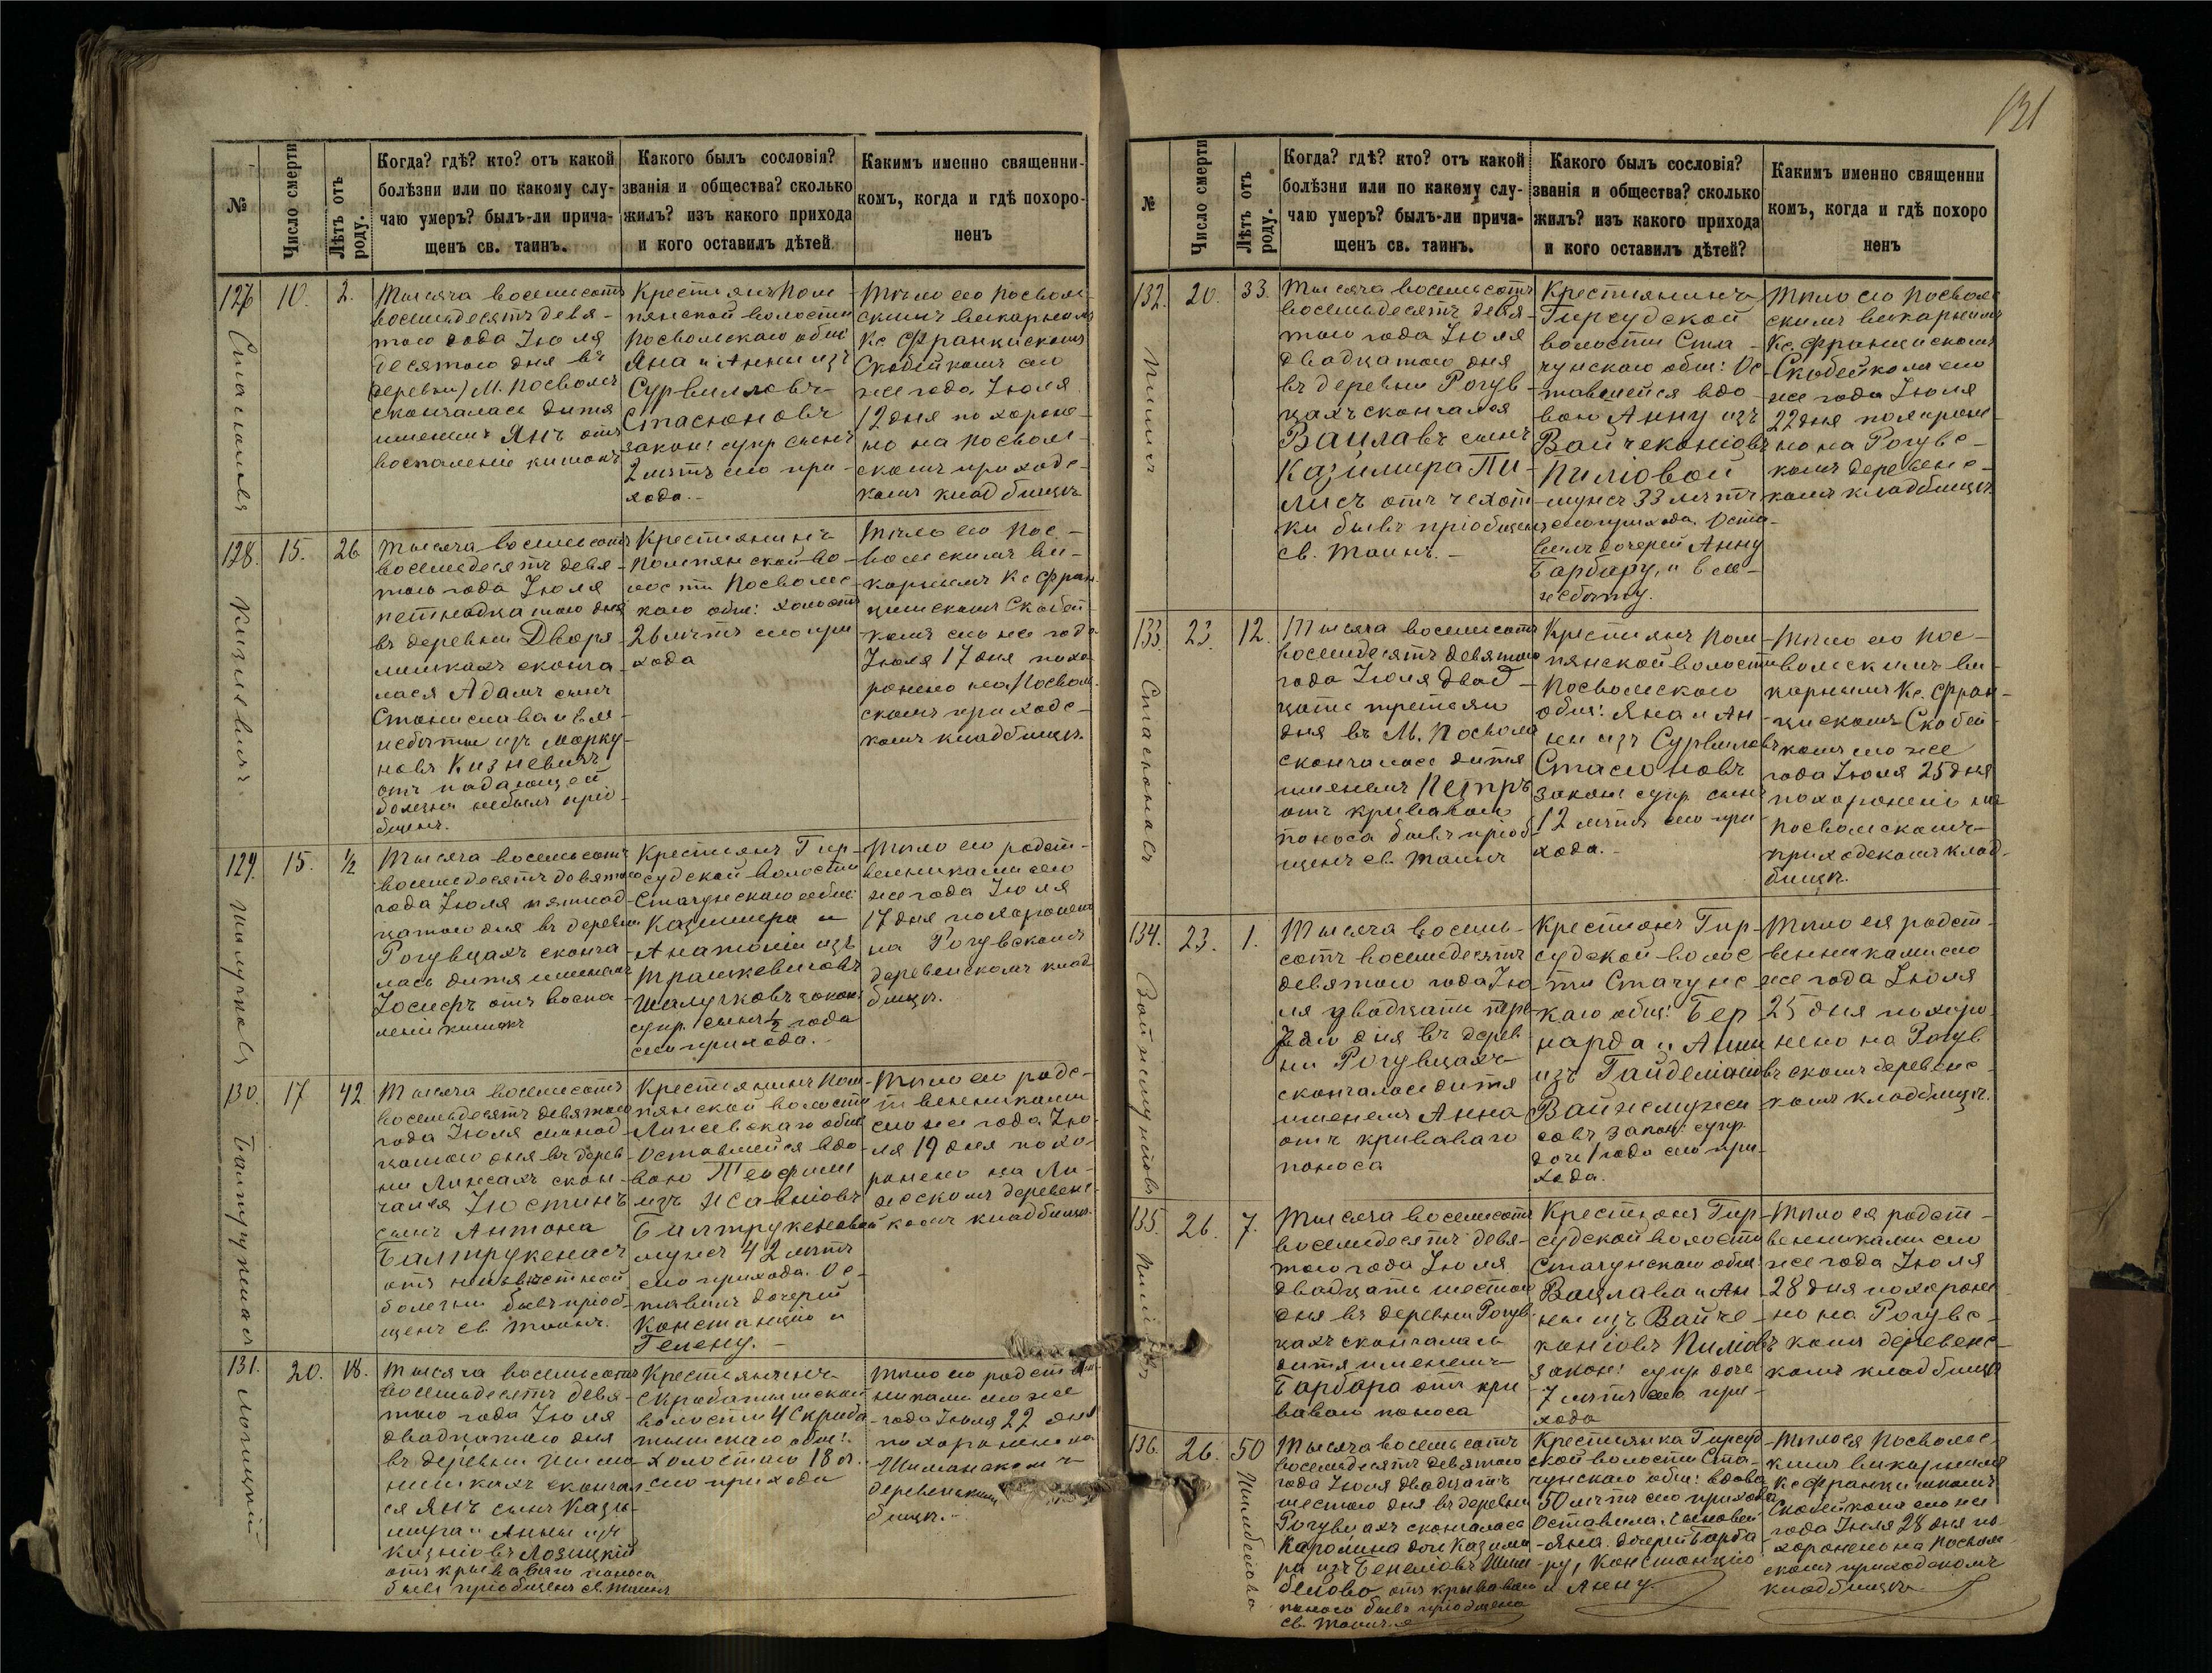 131
№
Число смерти
Лѣтъ отъ роду.
Когда? гдѣ? кто? отъ какой
болѣзни или по какому слу-
чаю умеръ? былъ-ли прича-
щенъ св. таинъ.
Какого былъ сословія?
званія и общества? сколько
жилъ? изъ какого прихода
и кого оставилъ дѣтей
Какимъ именно священни-
комъ, когда и гдѣ похоро-
ненъ
127
10.
2.
Тысяча восемьсотъ
восемьдесятъ девя-
таго года Іюля
десятаго дня въ
(деревни) М. Посволѣ
скончалась дитя
именемъ Янъ отъ
воспаленіе кишокъ
Крестьянъ Пом
пянской волости
Посвольскаго общ:
Яна и Анны изъ
Сурвилловъ
Стасюновъ
закон: супр сынъ
2 лѣтъ сего при-
хода.-
Тѣло его Посволь-
скимъ викарнымъ
Кс Францискомъ
Скобейкомъ сего
же года Іюля
12 дня похороне-
но на Посволь-
скомъ приходс-
комъ кладбищѣ
128.
15.
26
Тысяча восемьсотъ
восемьдесятъ девя-
таго года Іюля
петнадцатаго дня
въ деревни Дворя
лишкахъ сконча-
лася Адамъ сынъ
Станислава и Ель-
жбеты изъ Марку-
новъ Кизневичъ
отъ падающей
болезни небылъ прiо-
бщенъ.
Крестьянинъ
Помпянской во-
лости Посвольс-
каго общ: холостъ
26 лѣтъ сего при
хода
Тѣло его Пос-
вольскимъ ви-
карнымъ Кс Фран
цискомъ Скобей-
комъ сего же года
Іюля 17 дня похо
ронено на Посволь-
скомъ приходс-
комъ кладбищѣ.
129.
15.
½
Тысяча восемьсотъ
восемьдесятъ девятаго
года Іюля пятнад-
цатаго дня въ деревни
Рогувцахъ сконча
лась дитя именемъ
Іосифъ отъ воспа
леніе кишокъ
Крестьянъ Гир-
судской волости
Стачунскаго общ:
Казимира и
Анатоліи изъ
Трашкевичовъ
Шалучковъ закон:
супр. сынъ ½ года
сего прихода.-
Тѣло его родст-
венниками сего
же года Іюля
17 дня похоронено
на Рогувскомъ
деревенскомъ клад
бищѣ.
130.
17
42
Тысяча восемьсотъ
восемьдесятъ девятаго
года Іюля семнад-
цатаго дня въ дерев
ни Линсахъ скон-
чался Юстинъ
сынъ Антона
Балтрукенасъ
отъ неизвѣстной
болезни бывъ пріоб-
щенъ св. Таинъ.
Крестьянинъ Пом
пянской волости
общ:
Оставшейся вдо-
вою Теофили
изъ Исавніовъ
Балтрукеновой
мужъ 42 лѣтъ
сего прихода. Ос-
тавилъ дочерей
Констанцію и
Гелену.-
Тѣло его родс-
твенниками
сего же года Ію-
ля 19 дня похо-
ронено на Ли-
скомъ деревенс-
комъ кладбищѣ
131.
20.
18.
Тысяча восемьсотъ
восемьдесятъ девя-
таго года Іюля
двадцатаго дня
въ деревни
скончал-
ся Янъ сынъ Кази-
мира и Анны изъ
Кизніовъ Лозицкій
отъ криваваго поноса
бывъ пріобщенъ св. Таинъ
Крестьянинъ
волости
общ:
холостаго 18 л.
сего прихода
Тѣло его родствен
никами сего же
года Іюля 22 дня
похоронено на
деревенскомъ
бищѣ.-
№
Число смерти
Лѣтъ отъ роду.
Когда? гдѣ? кто? отъ какой
болѣзни или по какому слу-
чаю умеръ? былъ-ли прича-
щенъ св. таинъ.
Какого былъ сословія?
званія и общества? сколько
жилъ? изъ какого прихода
и кого оставилъ дѣтей?
Какимъ именно священни
комъ, когда и гдѣ похоро
ненъ
132.
20.
33.
Тысяча восемьсотъ
восемьдесятъ девя-
таго года Іюля
двадцатаго дня
въ деревни Рогув-
цахъ скончался
Вацлавъ сынъ
Казимира Пи-
лисъ отъ чехот-
ки бывъ пріобщенъ
св. Таинъ.-
Крестьянинъ
Гирсудской
волости Ста-
чунскаго общ: Ос
тавшейся вдо-
вою Анну изъ
Войчеконіовъ
Пиліовой
мужъ 33 лѣтъ
сего прихода. Оста-
вилъ дочерей Анну
Барбару, и Ель-
жбету.
Тѣло его Посволь
скимъ викарнымъ
Кс. Францискомъ
Скобейкомъ сего
же года Іюля
22 дня похороне-
но на Рогувс-
комъ деревенс-
комъ кладбищѣ.
133.
23.
12.
Тысяча восемьсотъ
восемьдесятъ девятаго
года Іюля двад-
цать третьяго
дня въ М. Посволѣ
скончалась дитя
именемъ Петръ
отъ криваваго
поноса бывъ пріоб-
щенъ св. Таинъ
Крестьянъ Пом
пянской волости
Посвольскаго
общ: Яна и Ан
ны изъ Сурвиловъ
Стасюновъ
закон: супр. сынъ
12 лѣтъ сего при
хода.-
Тѣло его Пос-
вольскимъ ви-
карнымъ Кс. Фран-
цискомъ Скобей-
комъ сего же
года Іюля 25 дня
похоронено на
Посвольскомъ
приходскомъ клад-
бищѣ.
134.
23.
1.
Тысяча восемь-
сотъ восемьдесятъ
девятаго года Ію
ля двадцати тре
дня въ дерев
ни Рогувцахъ
скончалась дитя
именемъ Анна
отъ криваваго
поноса
Крестьянъ Гир-
судской волос
ти Стачунс-
каго общ: Бер
нарда и Анны
изъ Гайделіановъ
закон: супр.
дочь 1 года сего при-
хода.
Тѣло ея родст-
венниками сего
же года Іюля
25 дня похоро-
нено на Рогув
скомъ деревенс-
комъ кладбищѣ.
135.
26.
7.
Тысяча восемьсотъ
восемьдесятъ девя-
таго года Іюля
двадцать шестаго
дня въ деревни Рогув-
цахъ скончалась
дитя именемъ
Барбара отъ кри
ваваго поноса
Крестьянъ Гир-
судской волости
Стачунскаго общ:
Вацлава и Ан
ны изъ Войче-
коніовъ Пиліовъ
закон: супр дочь
7 лѣтъ сего при-
хода
Тѣло ея родст-
венниками сего
же года Іюля
28 дня похороне
но на Рогувс-
комъ деревенс-
комъ кладбищѣ
136.
26.
50
Тысяча восемьсотъ
восемьдесятъ девятаго
года Іюля двадцать
шестаго дня въ деревни
Рогувцахъ скончалась
Каролина дочь Казими
ра изъ
отъ криваваго
поноса бывъ пріобщена
св. Таинъ.
Крестьянка Гирсуд
ской волости Ста-
чунскаго общ: вдова
50 лѣтъ сего прихода
Оставила сыновей
Яна. дочерей Барба
ру, Констанцію
и Анну.
Тѣло ея Посвольс-
кимъ викарнымъ
Кс Францискомъ
Скобейкомъ сего же
года Іюля 28 дня по-
хоронено на Посволь
скомъ приходскомъ
кладбищѣ